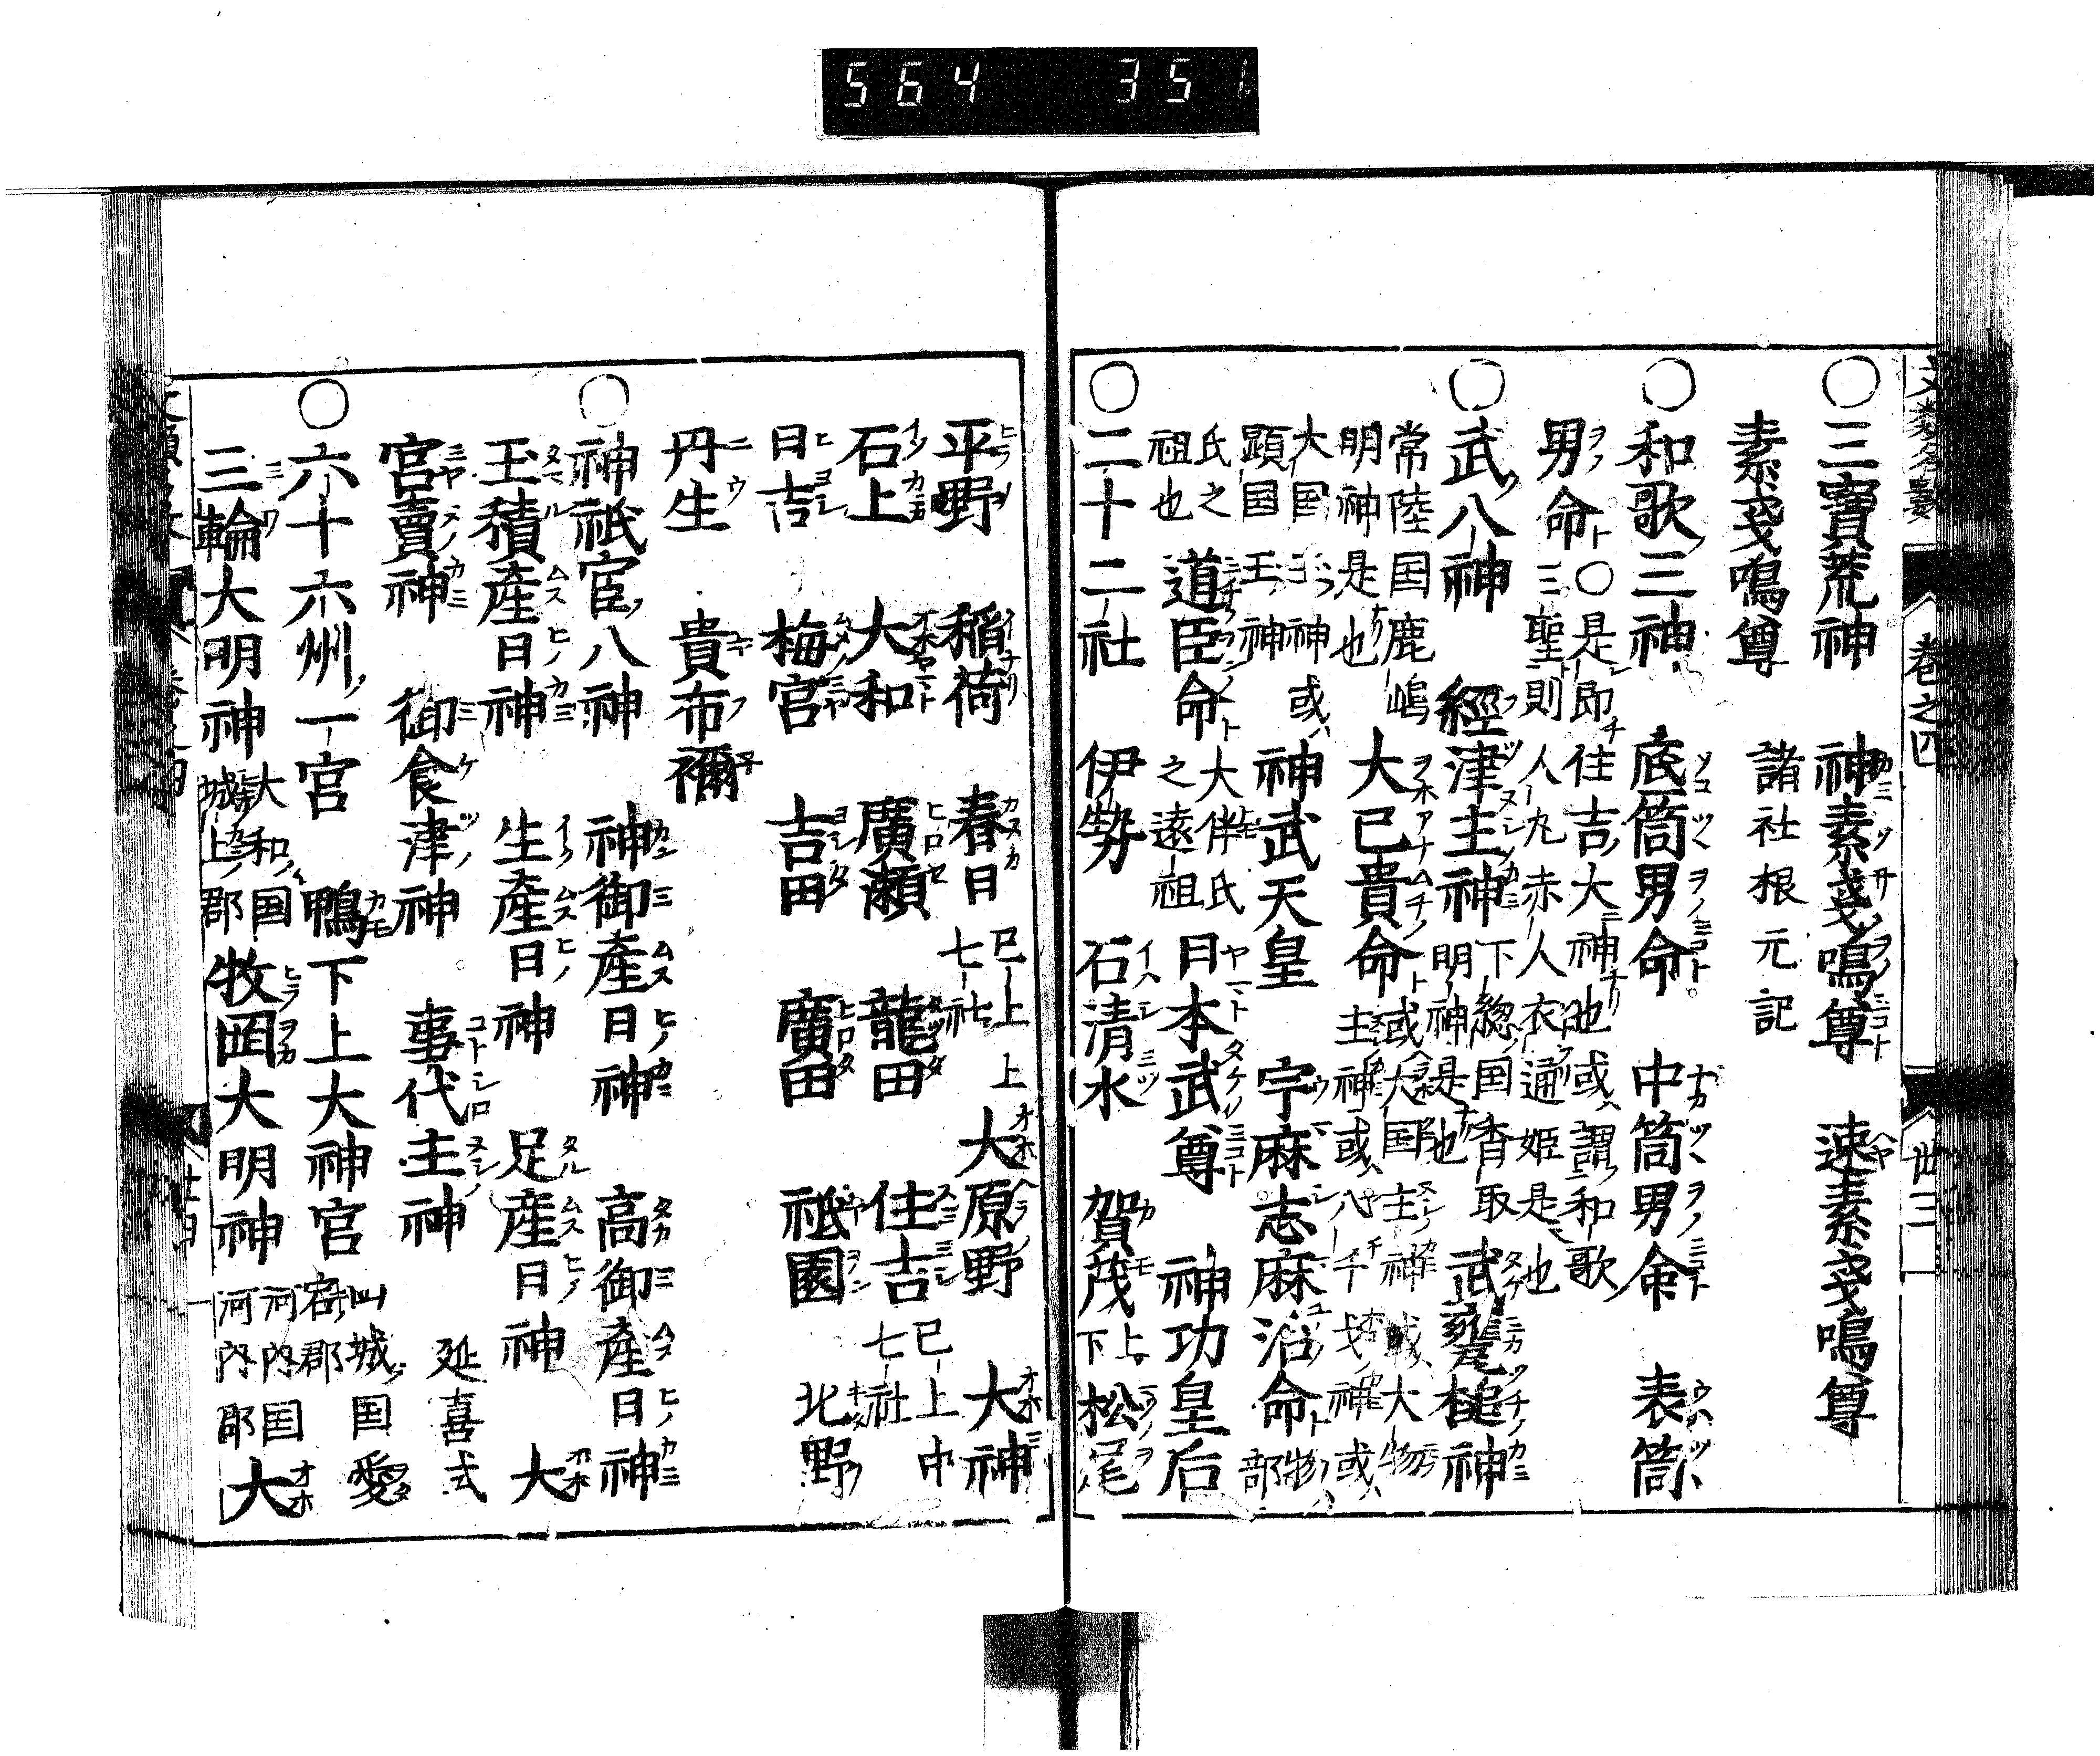 564 351
文類名數 巻之四 卅三
○三寶荒神 神素戔鳴尊 速素戔鳴尊
素戔鳴尊 諸社根元記
○和歌三神 底筒男命 中筒男命 表筒
男命 ○是即住吉大神也或謂和歌
三聖則人丸赤人衣通姫是也
○武八神 經津主神 下總国香取
明神是也 武甕槌神
常陸国鹿嶋
明神是也 大已貴命 或大国主神或大物
主神或八千戈神或
大国玉神或
顕国玉神 神武天皇 宇麻志麻治命 物
部
氏之
祖也 道臣命 大伴氏
之遠祖 日本武尊 神功皇后
○二十二社 伊勢 石清水 賀茂 上
下 松尾
平野 稲荷 春日 已上
七社 上 大原野 大神
石上 大和 廣瀬 龍田 住吉 已上中
七社
日吉 梅宮 吉田 廣田 祗園 北野
丹生 貴布禰
○神祇官八神 神御産日神 高御産日神
玉積産日神 生産日神 足産日神 大
宮賣神 御食津神 事代主神 延喜式
○六十六州一宮 鴨下上大神宮 山城国愛
宕郡
三輪大明神 大和国
城上郡 牧岡大明神 河内国
河内郡 大